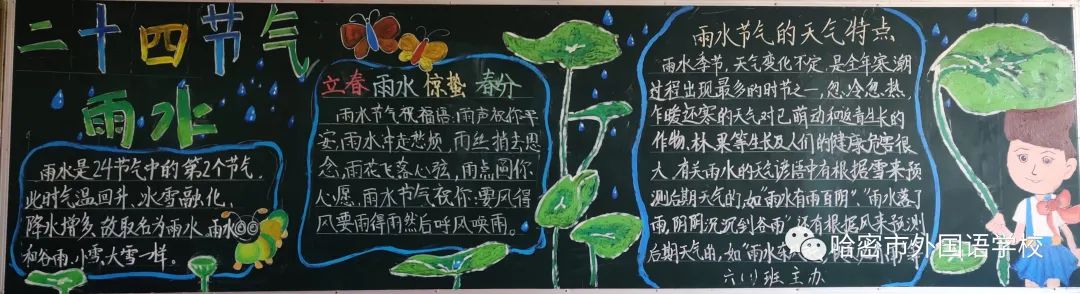 二十四节气
雨水
雨水是24节气中的第2个节气.
此时气温回升、冰雪融化、
降水增多,故取名为雨水.雨水
和谷雨、小雪、大雪一样。
立春 雨水 惊蛰 春分
雨水节气祝福语:雨声祝你平
安,雨水冲走愁烦,雨丝捎去思
念,雨花飞落心弦,雨点圆你
心愿,雨水节气祝你:要风得
风要雨得雨然后呼风唤雨。
雨水节气的天气特点
雨水季节,天气变化不定,是全年寒潮
过程出现最多的时节之一,忽冷忽热,
乍暖还寒的天气对已萌动和返青生长的
作物,林、果等生长及人们的健康危害很
大,有关雨水的天气谚语中有根据雪来预
测后期天气的,如"雨水有雨百阴"、"雨水落了
雨,阴阴沉沉到谷雨"还有根据风来预测
后期天气的,如"雨水东
六(1)班主办
哈密市外国语学校